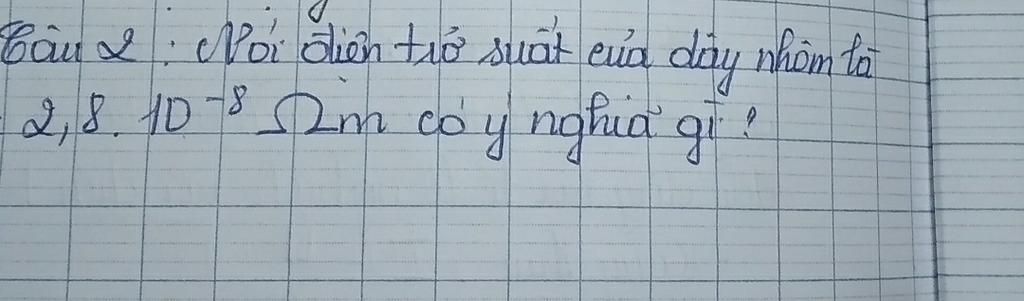 Câu 2 : Nói điện trở suất của dây nhôm là
2,8. 10⁻⁸ Ωm có ý nghĩa gì ?